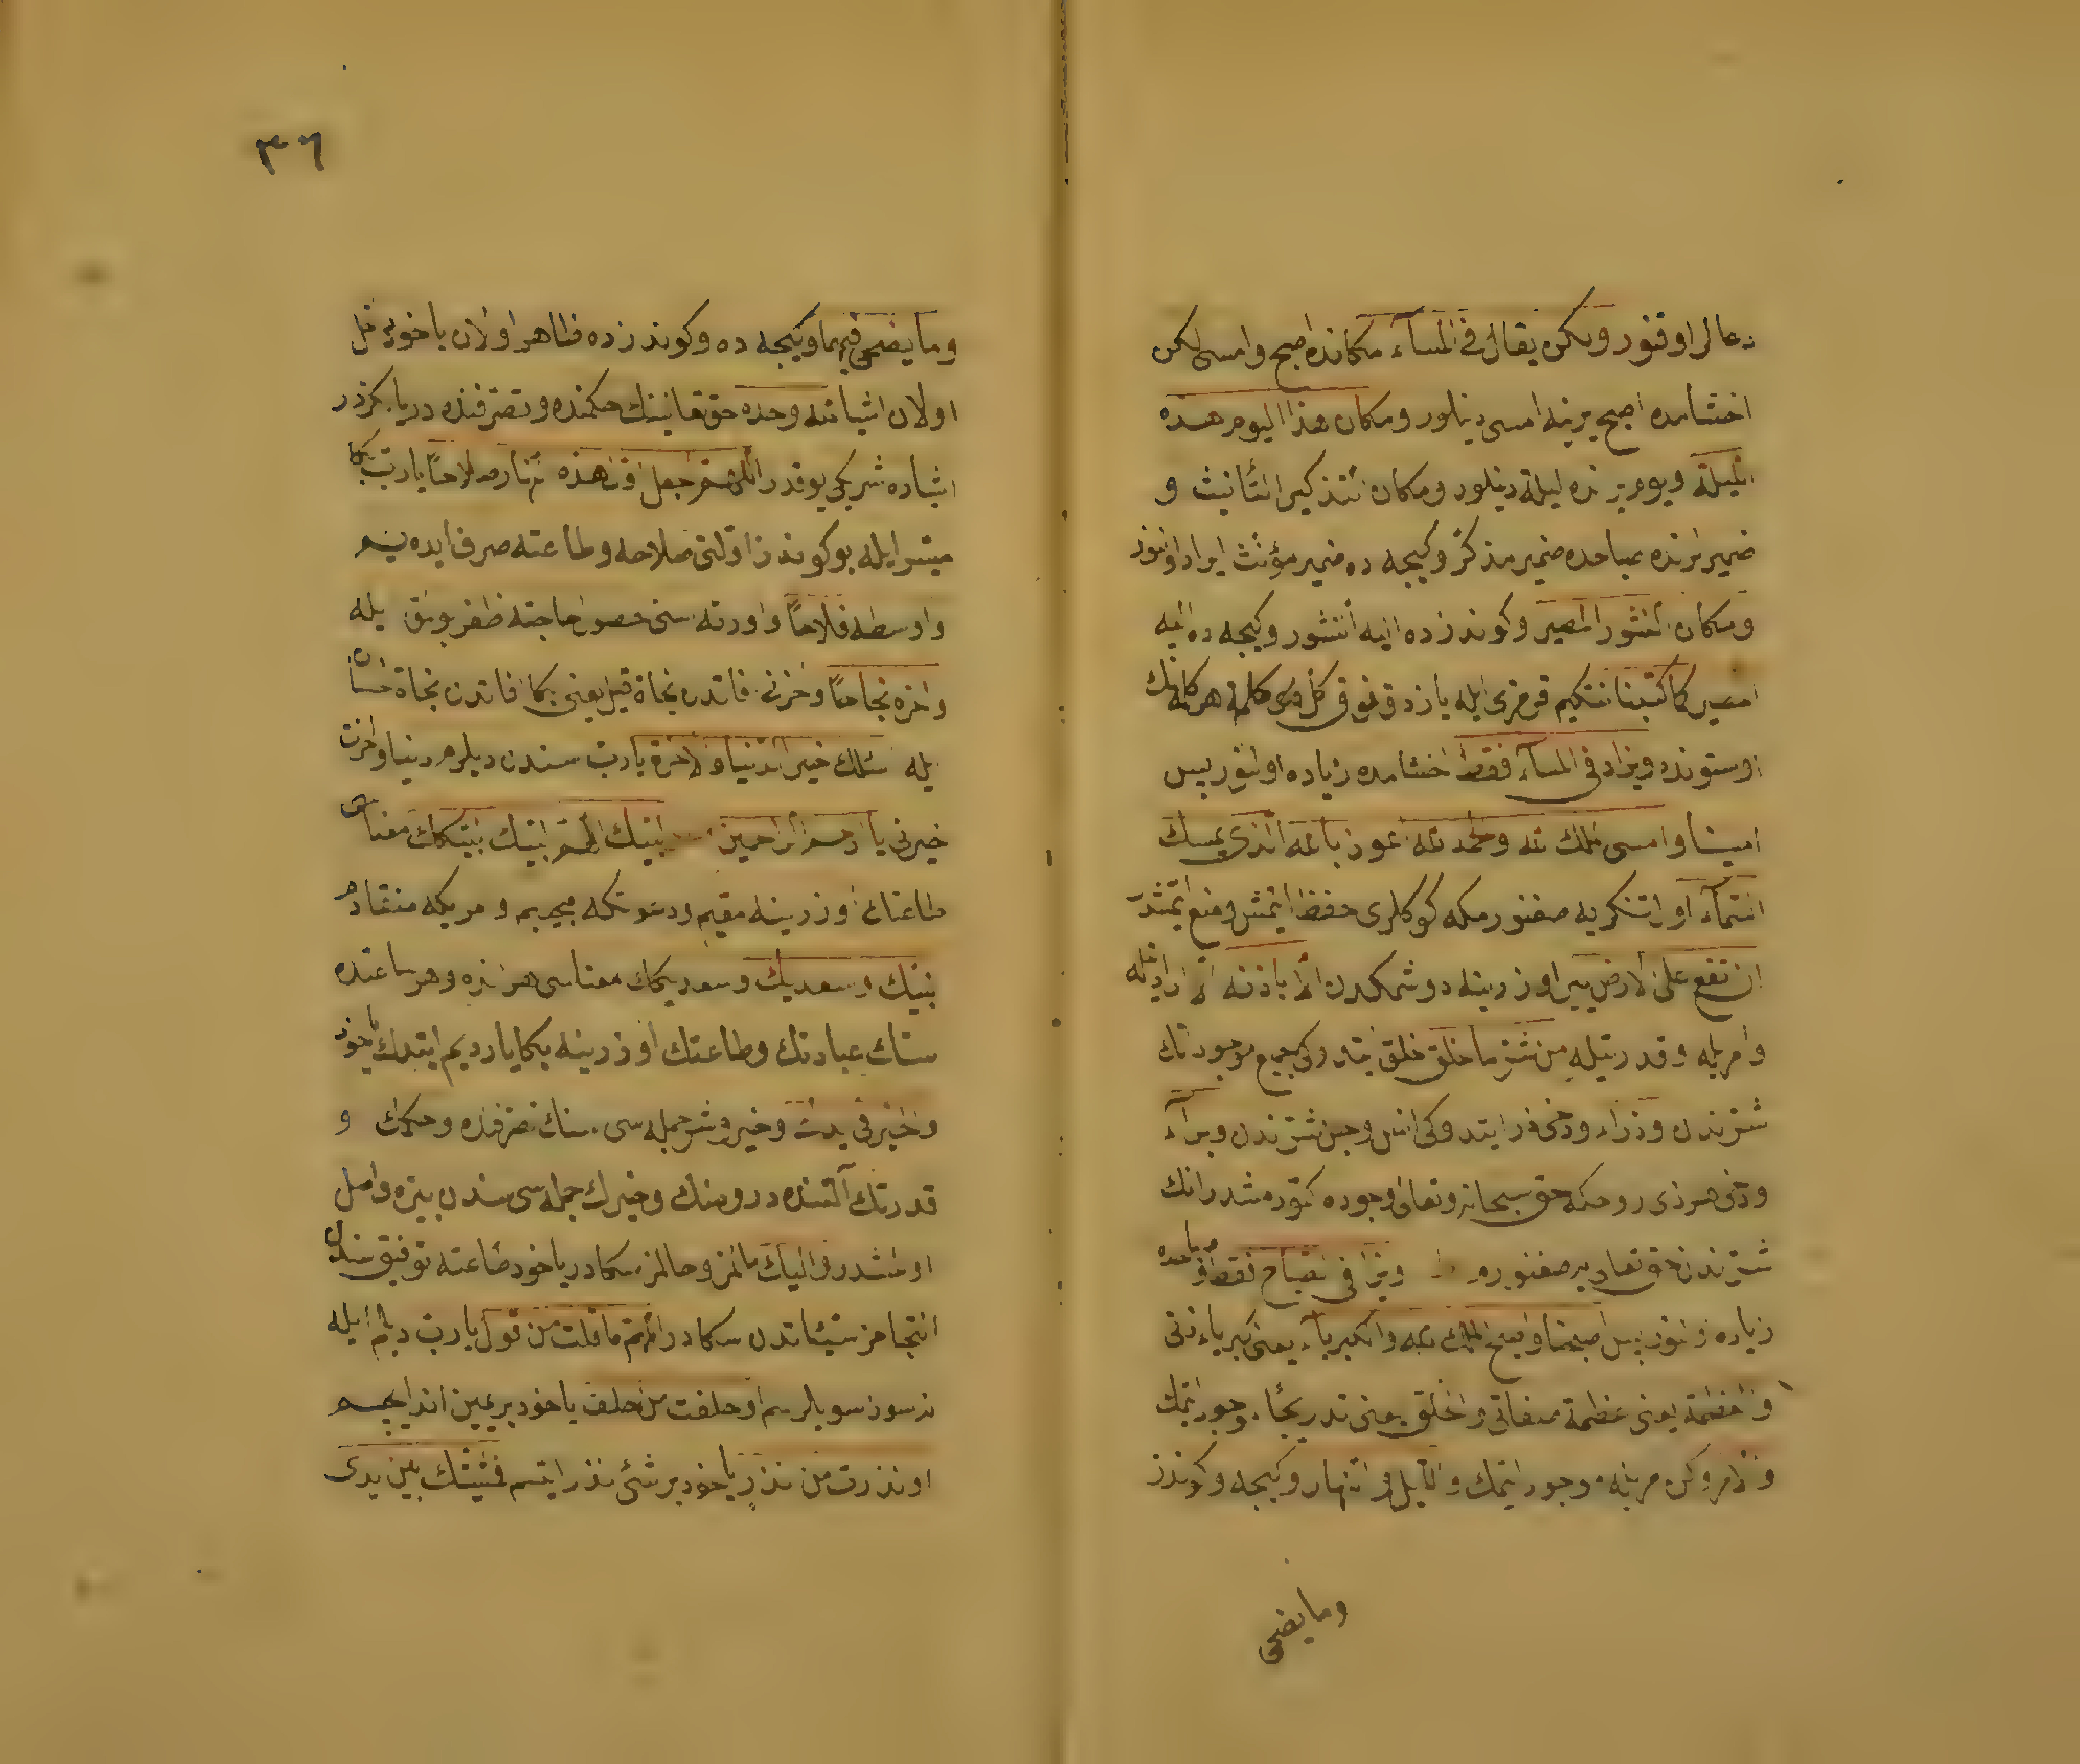 دعالر اوقنور ولكن يقال فى المسآء مكانده اصبح وامسى لكن
اخشامده اصبح يرينه امسى دينلور ومكان هذا اليوم هذه
الليلة ويوم يرنده ليلة دينلور ومكان التذكير التأنيث و
ضمير لرنده صباحده ضمير مذكر وكيجه ده ضمير مؤنث ايراد اولنور
ومكان النشور المصير وكوندزده اليه النشور وكيجه ده اليه
المصير كما كتبنا نتكيم قرمزى ايله يازدق فوق كل كلمة هر كلمه نك
اوستونده ويزاد فى المسآء فقط اخشامده زياده اولنور بس
امسينا وامسى الملك لله والحمد لله اعوذ بالله الذى يمسك
السمآء او لتنكريه صغنورمكه كوكلرى حفظ ايتمش ومنع ايتمشدر
ان تقع على الارض يير اوزرينه دوشمكدن الا باذنه الا اراديله
وامريله وقدرتيله من شر ما خلق خلق ايتدوكى جميع موجوداتك
شرندن وذرأ ودخى ذرأ ايتدوكى انس وجن شرندن وبرأ
ودخى هر ذى روحكه حق سبحانه وتعالى وجوده كتورمشدر انك
شرندن حق تعالى يه صغنورم ويزاد فى الصباح فقط وصباحده
زياده اولنور بس اصبحنا واصبح الملك لله والكبريآء يعنى كبرياء ذاتى
والعظمة يعنى عظمة صفاتى والخلق يعنى تدريجًا وجود ايتمك
والامر وكن امريله موجود ايتمك والليل والنهار وكيجه وكوندز
وما يضحى
٣٦
وما يضحى فيهما وكيجه ده وكوندزده ظاهر اولان ياخود داخل
اولان اشيا لله وحده حق تعالينك حكمنده وتصرفنده در يا بكزر
اشياده شريكى يوقدر اللهم اجعل اول هذه النهار صلاحًا يا رب بكا
ميسر ايله بو كوندز اولنى صلاحه وطاعته صرف ايده يم
واوسطه فلاحًا واورته سنى حصول حاجته ظفر بولمق ايله
واخره نجاحًا واخرنى افاتدن نجاة قيل يعنى بكا افاتدن نجاة احسان
ايله اسئلك خير الدنيا والاخرة يا رب سندن ديلرم دنيا واخرت
خيرنى يا ارحم الراحمين لبيك اللهم لبيك لبيكك معناسى
طاعتك اوزرينه مقيم ودعوتكه مجيبم وامريكه منقادم
لبيك وسعديك وسعديكك معناسى هر نزه وهر ساعتده
سنك عبادتك وطاعتك اوزرينه بكا ياردم ايتمك ياخود
والخير فى يديك وخير وشر جمله سى سنك تصرفنده وحكمك و
قدرتك آلتنده در ومنك وخيرك جمله سى سندن بيزه واصل
اولمشدر واليك مالمز وحالمز سكادر ياخود طاعته توفيق سندن
التجامز سيئاتدن سكادر اللهم ما قلت من قول يا رب ديلم ايله
نه سوز سويلرسم او حلفت من حلف ياخود بر يمين اند ايجسم
او نذرت من نذر ياخود بر شئ نذر ايتسم فمشيئتك بين يدى